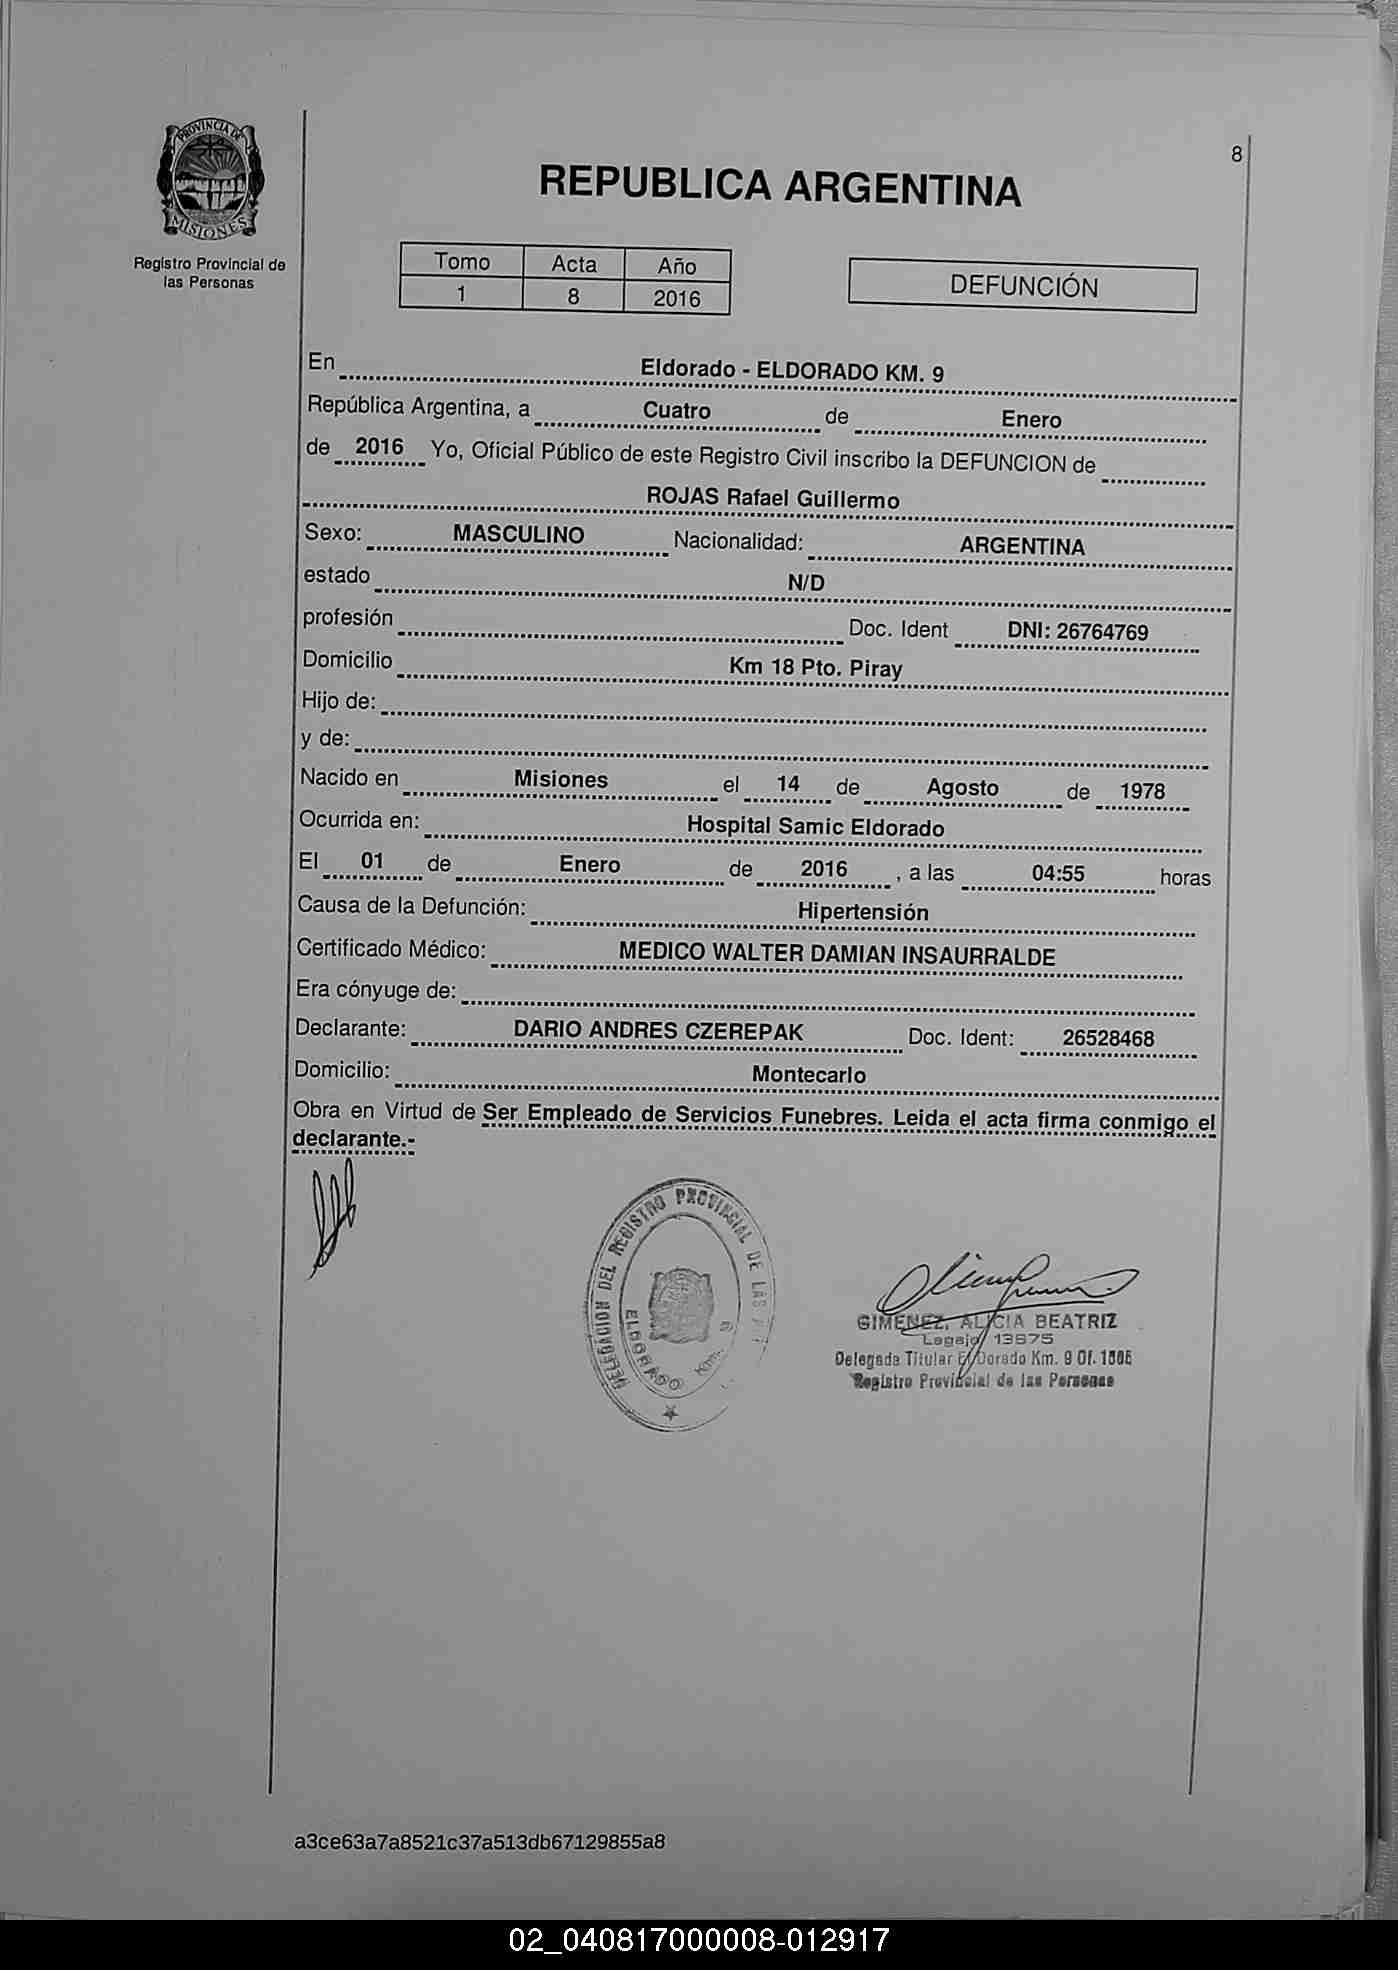 8
PROVINCIA DE
MISIONES
Registro Provincial de
las Personas
REPUBLICA ARGENTINA
Tomo Acta Año
1 8 2016
DEFUNCIÓN
En Eldorado - ELDORADO KM. 9
República Argentina, a Cuatro de Enero
de 2016 Yo, Oficial Público de este Registro Civil inscribo la DEFUNCION de
ROJAS Rafael Guillermo
Sexo: MASCULINO Nacionalidad: ARGENTINA
estado N/D
profesión Doc. Ident DNI: 26764769
Domicilio Km 18 Pto. Piray
Hijo de:
y de:
Nacido en Misiones el 14 de Agosto de 1978
Ocurrida en: Hospital Samic Eldorado
El 01 de Enero de 2016 , a las 04:55 horas
Causa de la Defunción: Hipertensión
Certificado Médico: MEDICO WALTER DAMIAN INSAURRALDE
Era cónyuge de:
Declarante: DARIO ANDRES CZEREPAK Doc. Ident: 26528468
Domicilio: Montecarlo
Obra en Virtud de Ser Empleado de Servicios Funebres. Leida el acta firma conmigo el
declarante.-
DELEGACION DEL REGISTRO PROVINCIAL DE LAS
ELDORADO KM. 9
GIMENEZ, ALICIA BEATRIZ
Legajo 13575
Delegada Titular ElDorado Km. 9 Of.
Registro Provincial de las Personas
a3ce63a7a8521c37a513db67129855a8
02_040817000008-012917